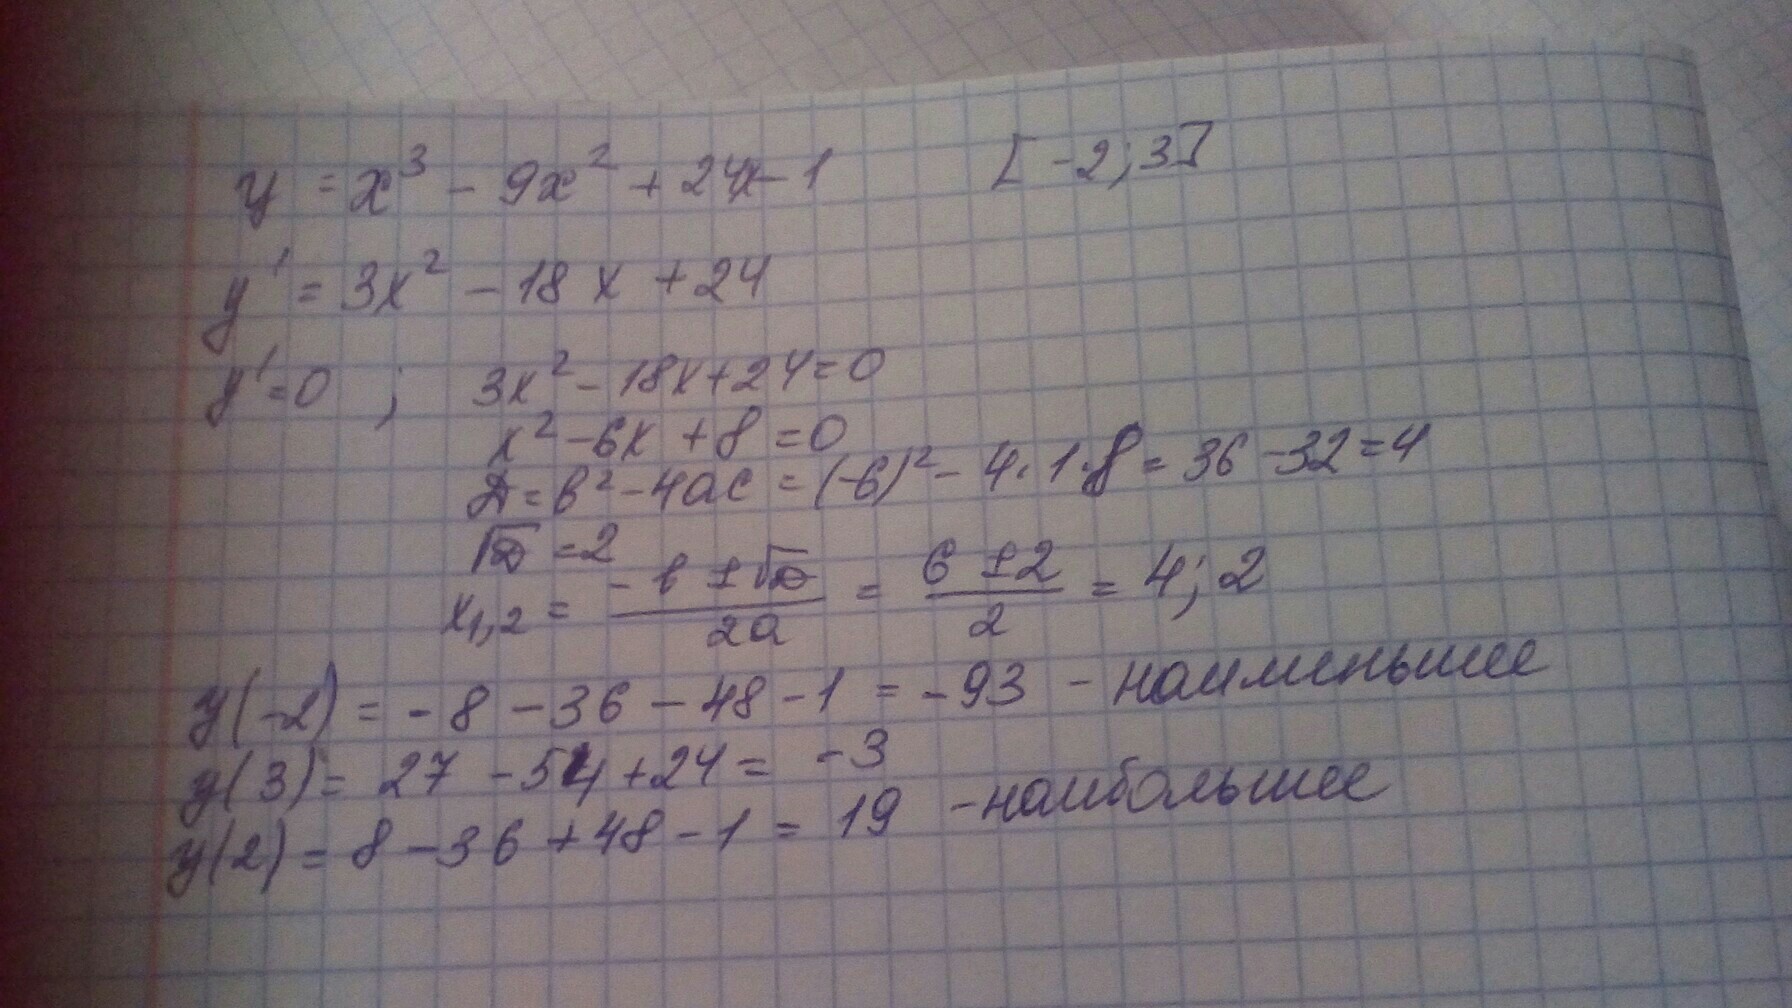 y = x³ - 9x² + 24x - 1 [-2; 3]
y' = 3x² - 18x + 24
y' = 0 ; 3x² - 18x + 24 = 0
x² - 6x + 8 = 0
Д = в² - 4ac = (-6)² - 4·1·8 = 36 - 32 = 4
√Д = 2
x₁,₂ = (-в ± √Д)/2a = (6 ± 2)/2 = 4; 2
y(-2) = -8 - 36 - 48 - 1 = -93 - наименьшее
y(3) = 27 - 54 + 24 = -3
y(2) = 8 - 36 + 48 - 1 = 19 - наибольшее